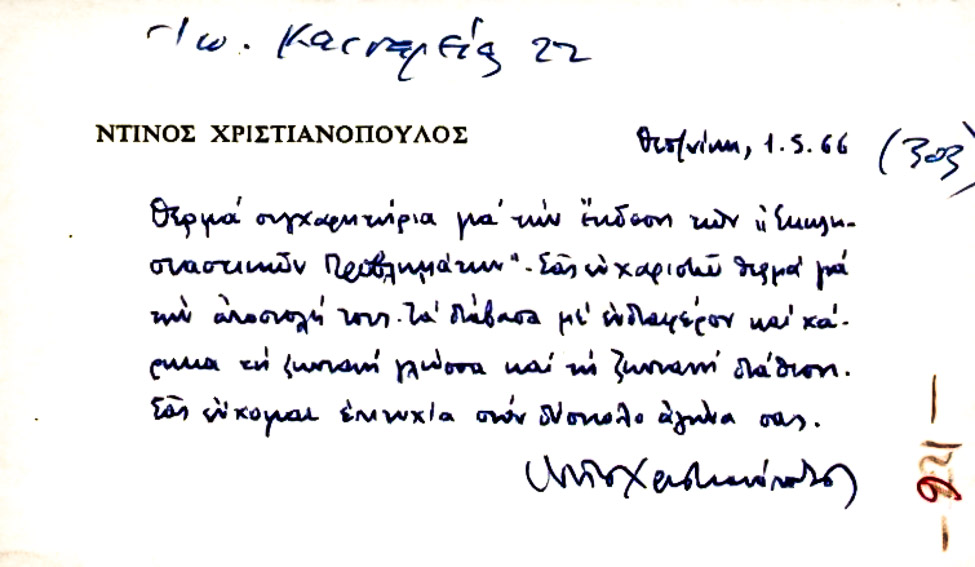 Ἰω. Κασσαρείας 22
ΝΤΙΝΟΣ ΧΡΙΣΤΙΑΝΟΠΟΥΛΟΣ
Θεσ/νίκη, 1.5.66 (303)
Θερμά συγχαρητήρια γιά τήν ἔκδοση τῶν "Ἐκκλη-
σιαστικῶν Προβλημάτων". Σᾶς εὐχαριστῶ θερμά γιά
τήν ἀποστολή τους. Τά διάβασα μέ ἐνδιαφέρον καί χά-
ρηκα τή ζωντανή γλώσσα καί τή ζωντανή διάθεση.
Σᾶς εὔχομαι ἐπιτυχία στόν δύσκολο ἀγῶνα σας.
Ντῖνος Χριστιανόπουλος
- 221 -